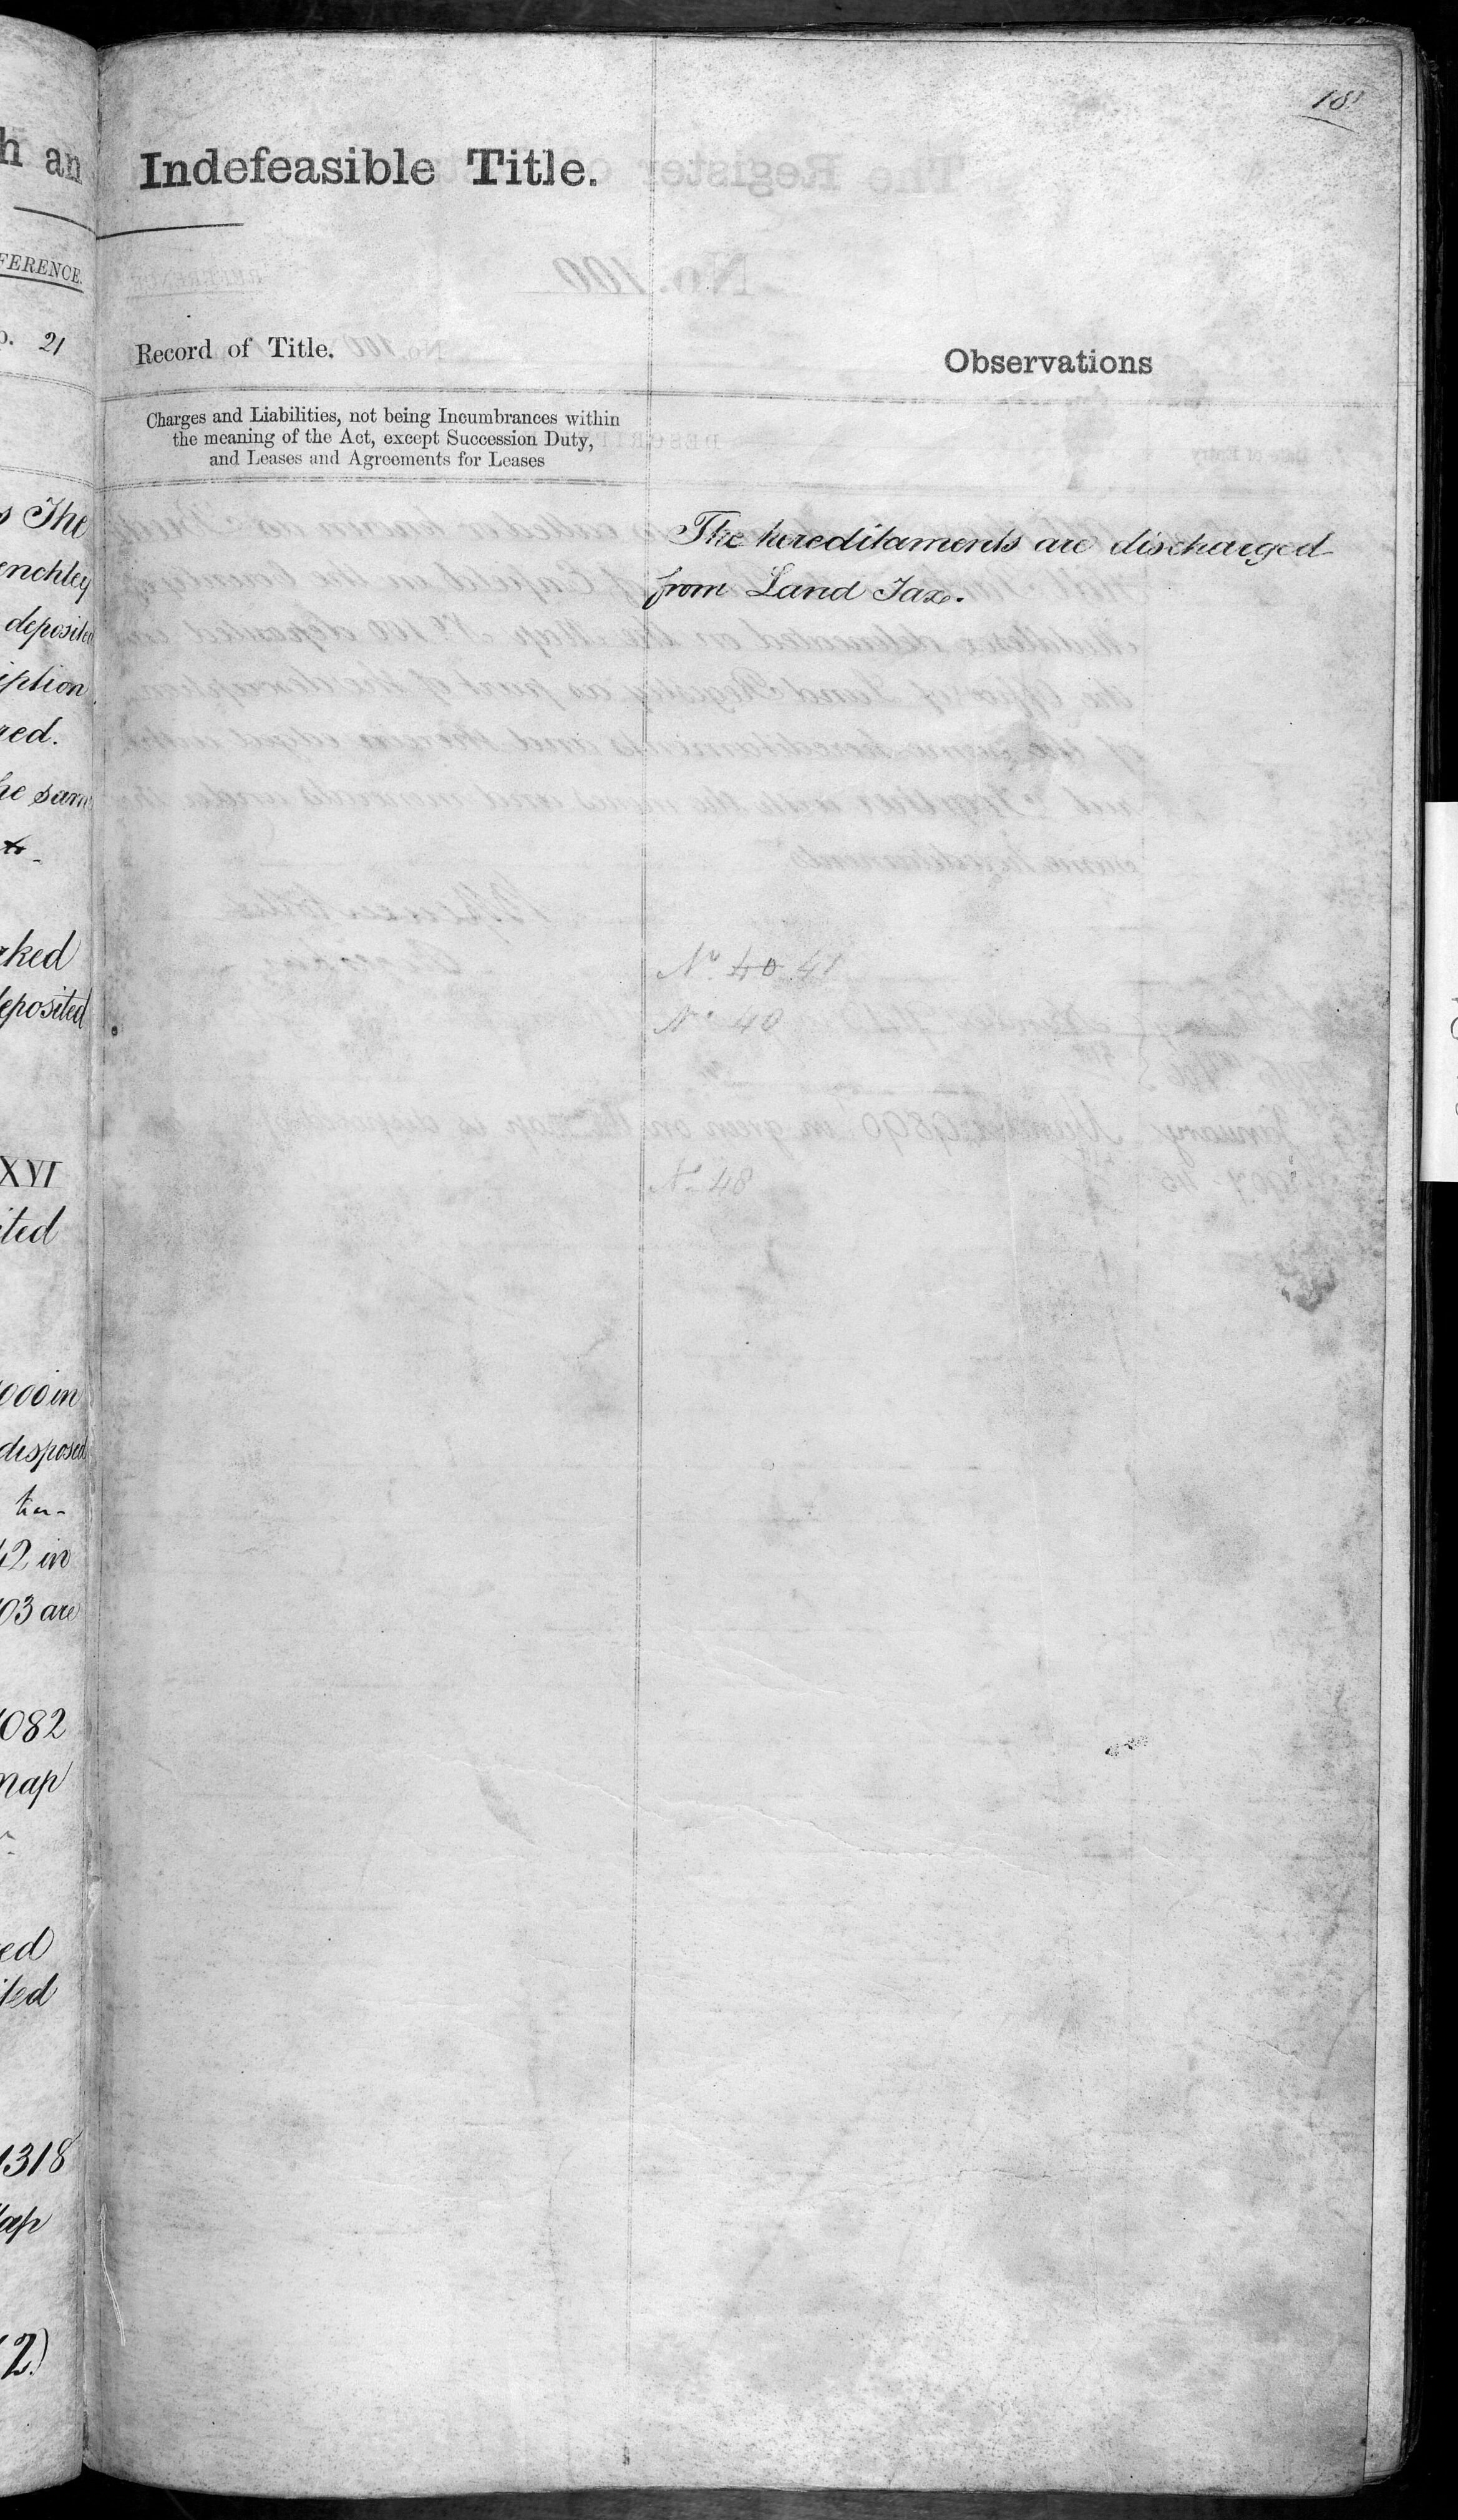 h an
FERENCE.
o. 21
s The
enchley
deposited
iption
red.
he same
rked
deposited
XVI
ited
000 in
disposed
42 in
03 are
1082
map
ed
ited
1318
ap
2)
18
Indefeasible Title.
Record of Title.
Observations
Charges and Liabilities, not being Incumbrances within
the meaning of the Act, except Succession Duty,
and Leases and Agreements for Leases
The hereditaments are discharged
from Land Tax.
No 40 41
No 40
No 48